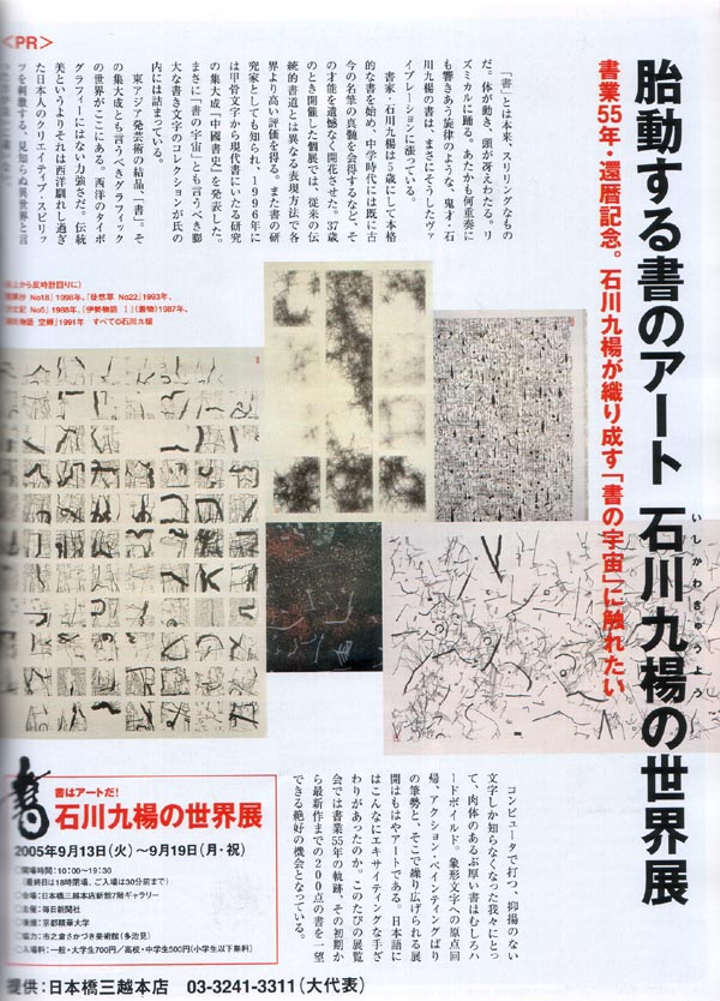 <PR>
胎動する書のアート 石川九楊の世界展
いしかわきゅうよう
書業55年・還暦記念。石川九楊が織り成す「書の宇宙」に触れたい
「書」とは本来、スリリングなもの
だ。体が動き、頭が冴えわたる。リ
ズミカルに踊る。あたかも何重奏に
も響きあう旋律のような、鬼才・石
川九楊の書は、まさにそうしたヴァ
イブレーションに漲っている。
書家・石川九楊は5歳にして本格
的な書を始め、中学時代には既に古
今の名筆の真髄を会得するなど、そ
の才能を遺憾なく開花させた。37歳
のとき開催した個展では、従来の伝
統的書道とは異なる表現方法で各
界より高い評価を得る。また書の研
究家としても知られ、1996年に
は甲骨文字から現代書にいたる研究
の集大成『中國書史』を発表した。
まさに「書の宇宙」とも言うべき膨
大な書き文字のコレクションが氏の
内には詰まっている。
東アジア発芸術の結晶、「書」。そ
の集大成とも言うべきグラフィック
の世界がここにある。西洋のタイポ
グラフィーにはない力強さだ。伝統
美というよりそれは西洋馴れし過ぎ
た日本人のクリエイティブ・スピリッ
ツを刺激する、見知らぬ異世界と言
上から反時計回りに)
No18」1998年、「徒然草 No22」1993年、
No5」1988年、「伊勢物語 Ⅰ」(着物)1987年、
物語 空蝉」1991年 すべて©石川九楊
コンピュータで打つ、抑揚のない
文字しか知らなくなった我々にとっ
て、肉体のあるぶ厚い書はむしろハ
ードボイルド。象形文字への原点回
帰、アクション・ペインティングばり
の筆勢と、そこで繰り広げられる展
開はもはやアートである。日本語に
はこんなにエキサイティングな手ざ
わりがあったのか。このたびの展覧
会では書業55年の軌跡、その初期か
ら最新作までの200点の書を一望
できる絶好の機会となっている。
書
書はアートだ!
石川九楊の世界展
2005年9月13日(火)~9月19日(月・祝)
○開場時間:10:00~19:30
(最終日は18時閉場、ご入場は30分前まで)
○会場:日本橋三越本店新館7階ギャラリー
○主催:毎日新聞社
○後援:京都精華大学
○協力:市之倉さかづき美術館(多治見)
○入場料:一般・大学生700円/高校・中学生500円(小学生以下無料)
提供:日本橋三越本店 03-3241-3311(大代表)